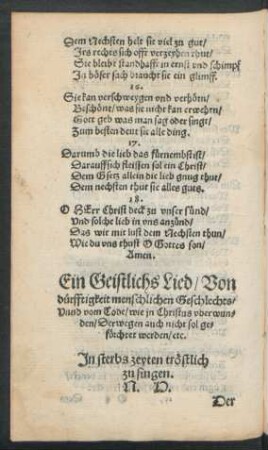 Dem Nechsten helt sie viel zu gut/
Irs rechts sich offt verzeyhen thut/
Sie bleibt standhafft in ernst vnd schimpf
In böser sach braucht sie ein glimff.
16.
Sie kan verschweygen vnd verhörn/
Beschönt/ was sie nicht kan erwehrn/
Gott geb was man sag oder singt/
Zum besten deut sie alle ding.
17.
Darumb die lieb das fürnembst ist/
Darauff sich fleissen sol ein Christ/
Dem Gsetz allein die lieb gnug thut/
Dem nechsten thut sie alles guts.
18.
O HErr Christ deck zu vnser sünd/
Vnd solche lieb in vns anzünd/
Das wir mit lust dem Nechsten thun/
Wie du vns thust O Gottes son/
Amen.
Ein Geistlichs Lied/ Von
dürfftigkeit menschlichen Geschlechts/
Vnnd vom Tode/ wie jn Christus vberwun-
den/ Derwegen auch nicht sol ge-
förchtet werden/ etc.
In sterbs zeyten tröstlich
zu singen.
N. D.
Der